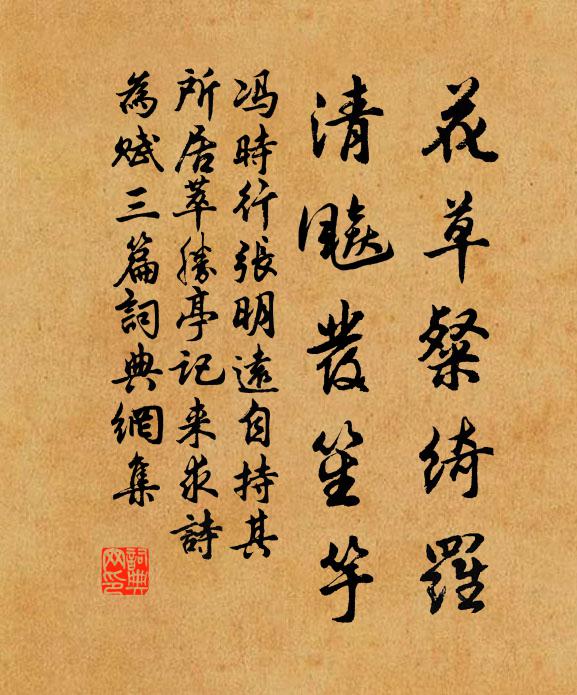 花草粲綺羅
清飈發笙竽
冯時行張明遠自持其
所居萃勝亭記来求詩
為賦三篇詞典網集
詞典网印